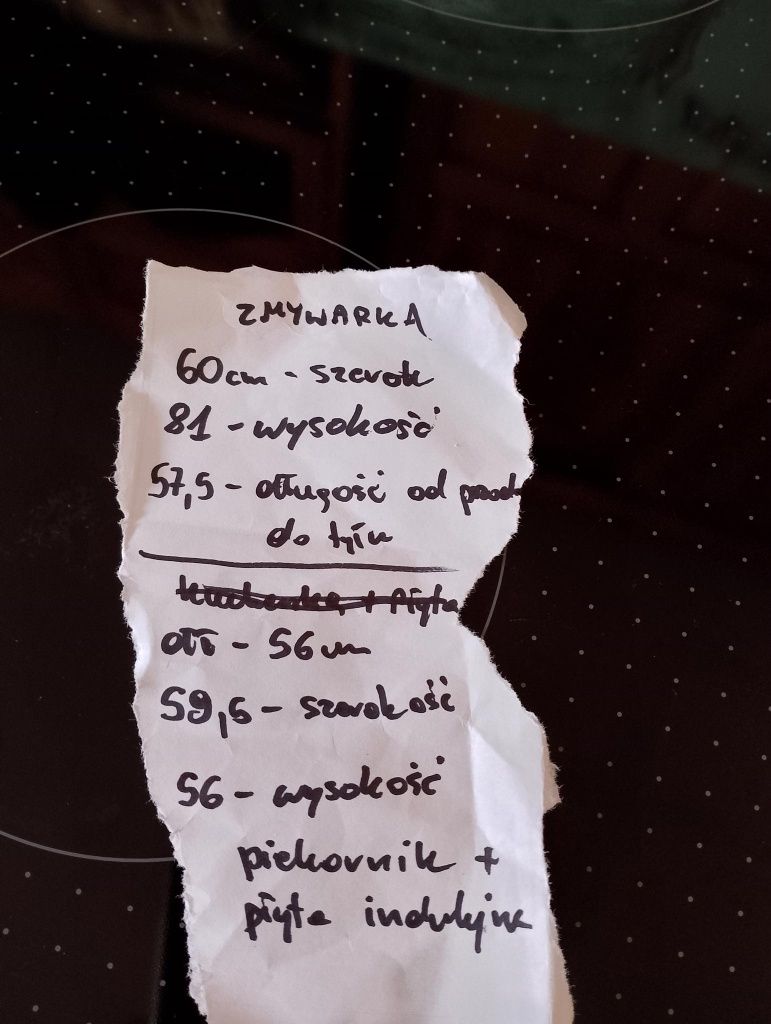 ZMYWARKA
60cm - szerok
81 - wysokość
57,5 - długość od przodu
do tyłu
kuchenka + płyta
dł - 56cm
59,5 - szerokość
56 - wysokość
piekarnik +
płyta indukcyjna